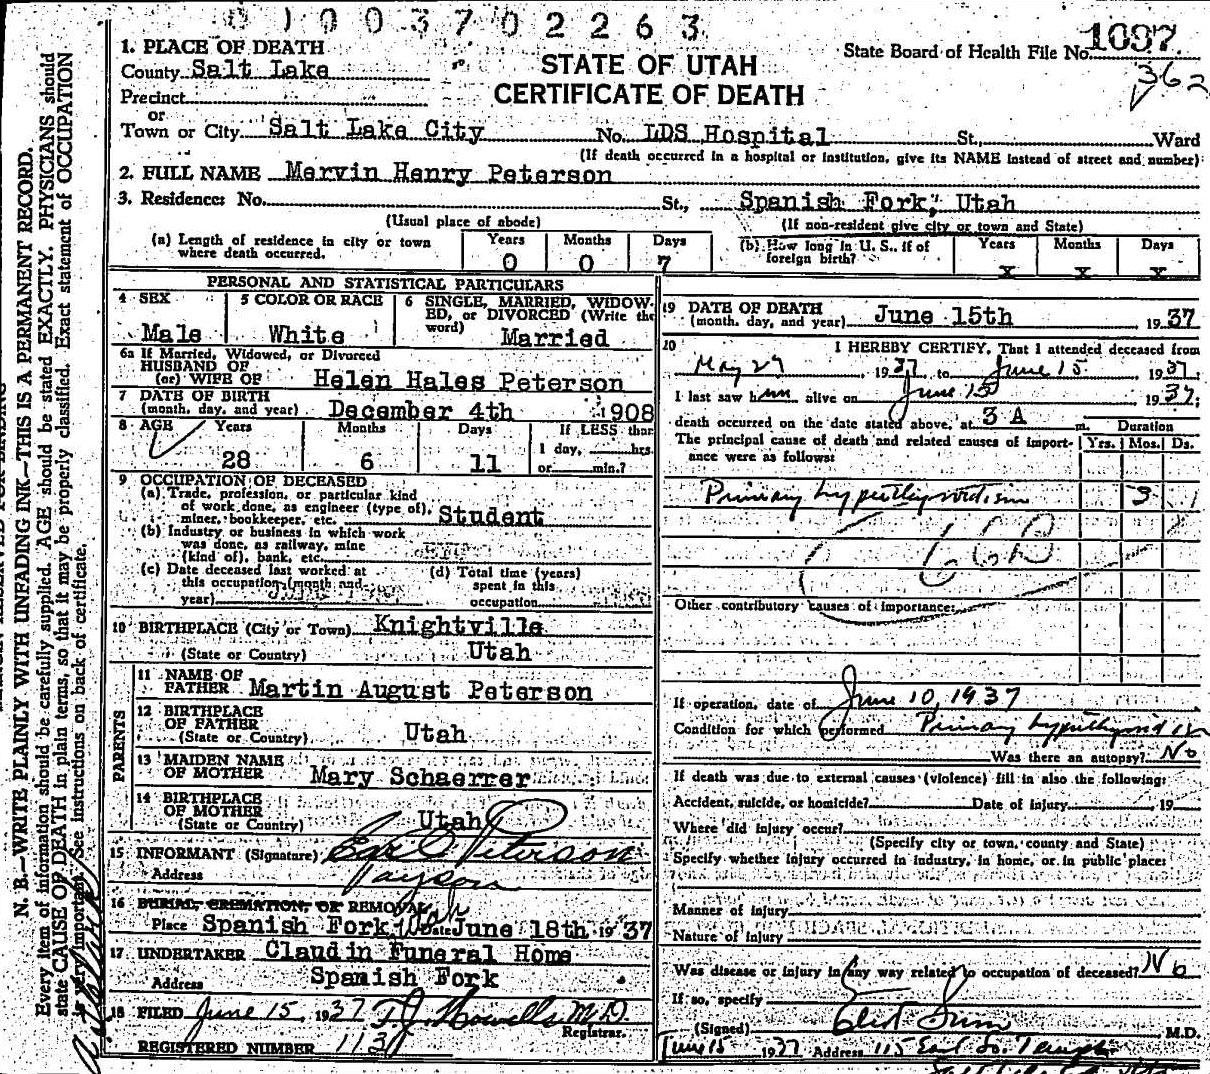 01003702263
State Board of Health File No. 1097.
362
1. PLACE OF DEATH
STATE OF UTAH
County Salt Lake
CERTIFICATE OF DEATH
Precinct
or
Town or City Salt Lake City No. LDS Hospital St., Ward
(If death occurred in a hospital or institution, give its NAME instead of street and number)
2. FULL NAME Mervin Henry Peterson
3. Residence: No. St., Spanish Fork, Utah
(Usual place of abode) (If non-resident give city or town and State)
(a) Length of residence in city or town where death occurred. Years 0 Months 0 Days 7
(b) How long in U. S., if of foreign birth? Years x Months x Days x
PERSONAL AND STATISTICAL PARTICULARS
4 SEX Male
5 COLOR OR RACE White
6 SINGLE, MARRIED, WIDOWED, or DIVORCED (Write the word) Married
6a If Married, Widowed, or Divorced
HUSBAND OF
(or) WIFE OF Helen Hales Peterson
7 DATE OF BIRTH
(month, day, and year) December 4th 1908
8 AGE Years 28 Months 6 Days 11 If LESS than 1 day, hrs. or min.?
9 OCCUPATION OF DECEASED
(a) Trade, profession, or particular kind
of work done, as engineer (type of),
miner, bookkeeper, etc. Student
(b) Industry or business in which work
was done, as railway, mine
(kind of), bank, etc.
(c) Date deceased last worked at
this occupation (month and
year)
(d) Total time (years)
spent in this
occupation
10 BIRTHPLACE (City or Town) Knightville
(State or Country) Utah
PARENTS
11 NAME OF
FATHER Martin August Peterson
12 BIRTHPLACE
OF FATHER
(State or Country) Utah
13 MAIDEN NAME
OF MOTHER Mary Schaerrer
14 BIRTHPLACE
OF MOTHER
(State or Country) Utah
15 INFORMANT (Signature) Peterson
Address Payson
Utah
16 BURIAL, CREMATION, OR REMOVAL
Place Spanish Fork, Date June 18th 1937
17 UNDERTAKER Claudin Funeral Home
Address Spanish Fork
18 FILED June 15, 1937 T.J. Howells M.D.
Registrar.
REGISTERED NUMBER 1137
19 DATE OF DEATH
(month, day, and year) June 15th 1937
20 I HEREBY CERTIFY, That I attended deceased from
May 29 1937 to June 15 1937
I last saw him alive on June 15 1937;
death occurred on the date stated above, at 3 A m. Duration
The principal cause of death and related causes of importance were as follows: Yrs. Mos. Ds.
Primary hyperthyroidism 3
66B
Other contributory causes of importance:
If operation, date of June 10, 1937
Condition for which performed Primary hyperthyroidism
Was there an autopsy? No
If death was due to external causes (violence) fill in also the following:
Accident, suicide, or homicide? Date of injury 19
Where did injury occur?
(Specify city or town, county and State)
Specify whether injury occurred in industry, in home, or in public place:
Manner of injury
Nature of injury
Was disease or injury in any way related to occupation of deceased? No
If so, specify
(Signed) M.D.
June 15 1937 Address 115 East So. Temple
N. B.—WRITE PLAINLY WITH UNFADING INK—THIS IS A PERMANENT RECORD.
Every item of information should be carefully supplied. AGE should be stated EXACTLY. PHYSICIANS should
state CAUSE OF DEATH in plain terms, so that it may be properly classified. Exact statement of OCCUPATION
is very important. See instructions on back of certificate.